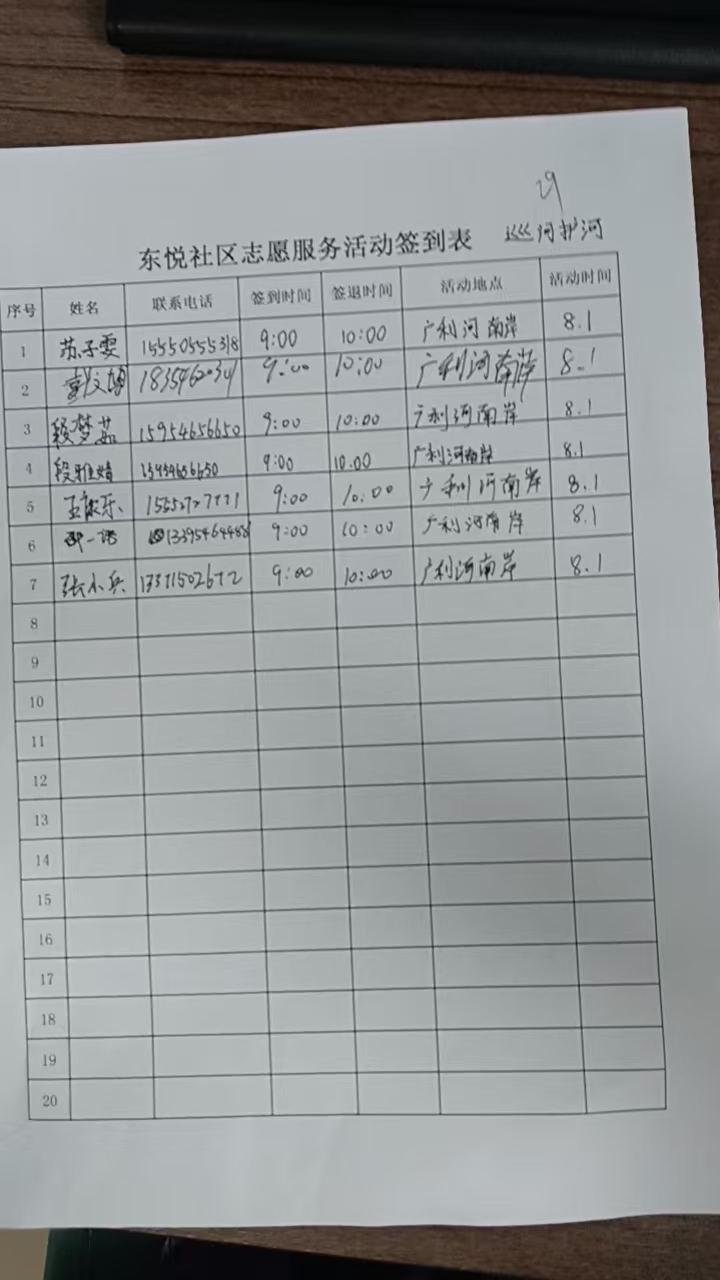 29
东悦社区志愿服务活动签到表 巡河护河
序号 姓名 联系电话 签到时间 签退时间 活动地点 活动时间
1 苏子雯 15550555318 9:00 10:00 广利河南岸 8.1
2 9:00 10:00 广利河南岸 8.1
3 段梦茹 15954656650 9:00 10:00 广利河南岸 8.1
4 段雅婧 9:00 10.00 广利河南岸 8.1
5 9:00 10:00 广利河南岸 8.1
6 9:00 10:00 广利河南岸 8.1
7 张小兵 9:00 10:00 广利河南岸 8.1
8
9
10
11
12
13
14
15
16
17
18
19
20